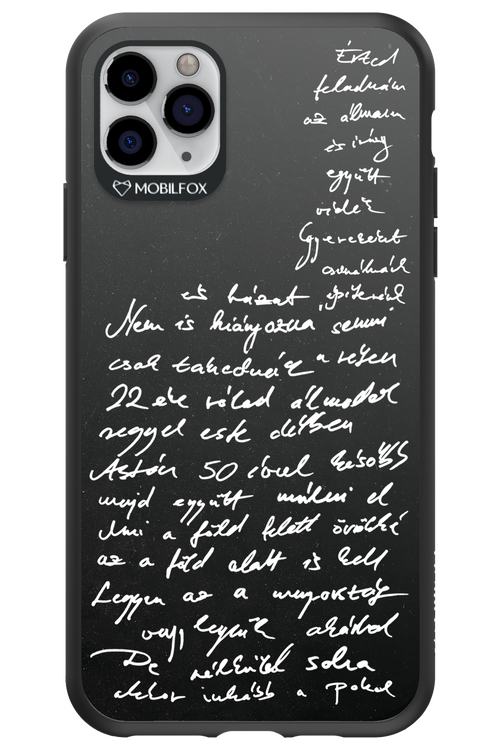 MOBILFOX
Érted
feladnám
az álmaim
és irány
együtt
vidék
Gyerekeket
csinálnánk
és házat építenénk
Nem is hiányozna semmi
csak takednénk a réten
22 éve rólad álmodok
reggel este délben
Aztán 50 évvel később
majd együtt múlni el
Ami a föld felett örökké
az a föld alatt is kell
Legyen az a mennyország
vagy legyünk akárhol
De nélküled soha
akkor inkább a pokol